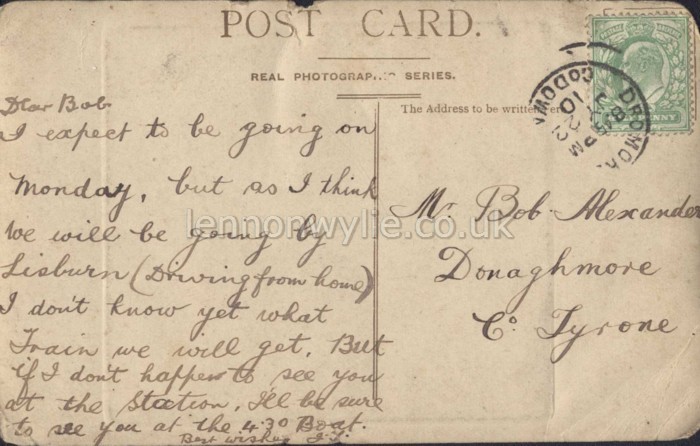 POST CARD.
REAL PHOTOGRAPHIC SERIES.
The Address to be written
Dear Bob
I expect to be going on
Monday, but as I think
we will be going by
Lisburn (Driving from home)
I don't know yet what
Train we will get. But
if I don't happen to see you
at the Station, I'll be sure
to see you at the 4.30 Boat.
Best wishes
Mr. Bob Alexander
Donaghmore
Co Tyrone
DROMORE
CO DOWN
lennonwylie.co.uk